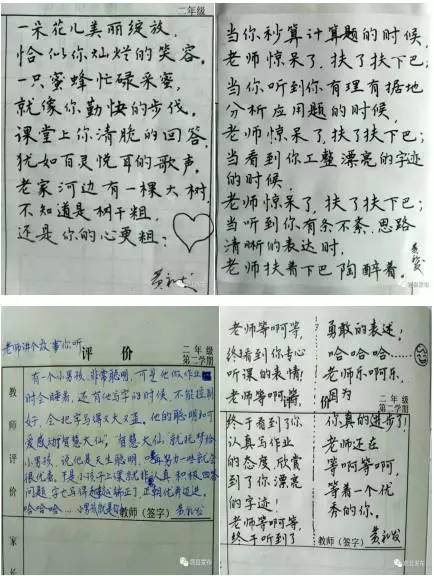 二年级
一朵花儿美丽绽放,
恰似你灿烂的笑容。
一只蜜蜂忙碌采蜜,
就像你勤快的步伐。
课堂上你清脆的回答,
犹如百灵悦耳的歌声。
老家河边有一棵大树,
不知道是树干粗,
还是你的心更粗?
当你秒算计算题的时候,
老师惊呆了,扶了扶下巴;
当你听到你有理有据地
分析应用题的时候,
老师惊呆了,扶了扶下巴;
当看到你工整漂亮的字迹
的时候,
老师惊呆了,扶了扶下巴;
当听到你有条不紊、思路
清晰的表达时,
老师扶着下巴陶醉着。
老师讲个故事你听
评价
二年级
第二学期
教师评价
有一个小男孩,非常聪明,可是他做作业
时会瞌着,还有他写字的时候,不能控制
好,会把字写得又大又歪。他的聪明和可
爱感动了智慧大仙,智慧大仙就托梦给
小男孩,说他是天生聪明,再努力一些就会
很优秀。于是小孩子上课就非常认真积极回答
问题,字也写得越来越端正了,正朝优秀迈进。
哈哈哈…小男孩就是你
教师(签字)
家长
老师等啊等,
终于看到你专心
听课的表情!
老师等啊等,
终于看到了你
认真写作业
的态度,欣赏
到了你漂亮
的字迹!
老师等啊等,
终于听到了
勇敢的表述!
哈哈哈……
老师乐啊乐,
因为
评价
二年级
第二学期
你真的进步了!
老师还在
等啊等啊,
等着一个优
秀的你。
教师(签字)